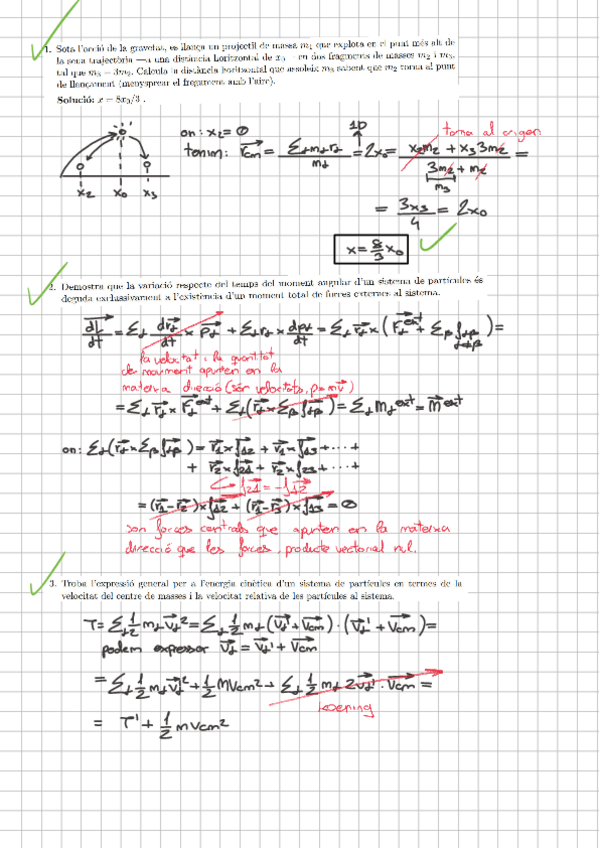 1. Sota l'acció de la gravetat, es llança un projectil de massa m₁ que explota en el punt més alt de
la seua trajectòria —a una distància horitzontal de x₀— en dos fragments de masses m₂ i m₃,
tal que m₃ = 3m₂. Calcula la distància horitzontal que assoleix m₃ sabent que m₂ torna al punt
de llançament (menyspreat el fregament amb l'aire).
Solució: x = 8x₀/3 .
x₂ x₀ x₃
on: x₂ = 0
tenim: r⃗cm = Σ₁ m₁ r₁ / m₁ = 2x₀ = (x₂m₂ + x₃ 3m₂) / (3m₂ + m₂) =
1D
torna al origen
m₃
= 3x₃/4 = 2x₀
x = 8/3 x₀
2. Demostra que la variació respecte del temps del moment angular d'un sistema de partícules és
deguda exclusivament a l'existència d'un moment total de forces externes al sistema.
dL⃗/dt = Σ₁ dr⃗₁/dt × p⃗₁ + Σ₁ r₁ × dp₁/dt = Σ₁ r⃗₁ × (F⃗₁ext + Σβ f₁β) =
la velocitat i la quantitat
de moviment apunten en la
mateixa direcció (són velocitats, p=mv⃗)
= Σ₁ r⃗₁ × F⃗₁ext + Σ₁(r⃗₁ × Σβ f⃗₁β) = Σ₁ M₁ext = M⃗ext
on: Σ₁(r⃗₁ × Σβ f⃗₁β) = r⃗₁ × f⃗12 + r⃗₁ × f⃗13 + ···
+ r⃗₂ × f⃗21 + r⃗₂ × f⃗23 + ···
f⃗21 = -f⃗12
= (r⃗₁ - r⃗₂) × f⃗12 + (r⃗₁ - r⃗₃) × f⃗13 = 0
son forces centrals que apunten en la mateixa
direcció que les forces, producte vectorial nul.
3. Troba l'expressió general per a l'energia cinètica d'un sistema de partícules en termes de la
velocitat del centre de masses i la velocitat relativa de les partícules al sistema.
T = Σ₁ 1/2 m₁ v⃗₁² = Σ₁ 1/2 m₁ (v⃗₁' + v⃗cm) · (v⃗₁' + v⃗cm) =
podem expressar v⃗₁ = v⃗₁' + v⃗cm
= Σ₁ 1/2 m₁ v⃗₁'² + 1/2 M Vcm² + Σ₁ 1/2 m₁ 2v⃗₁' · v⃗cm =
koening
= T' + 1/2 m vcm²